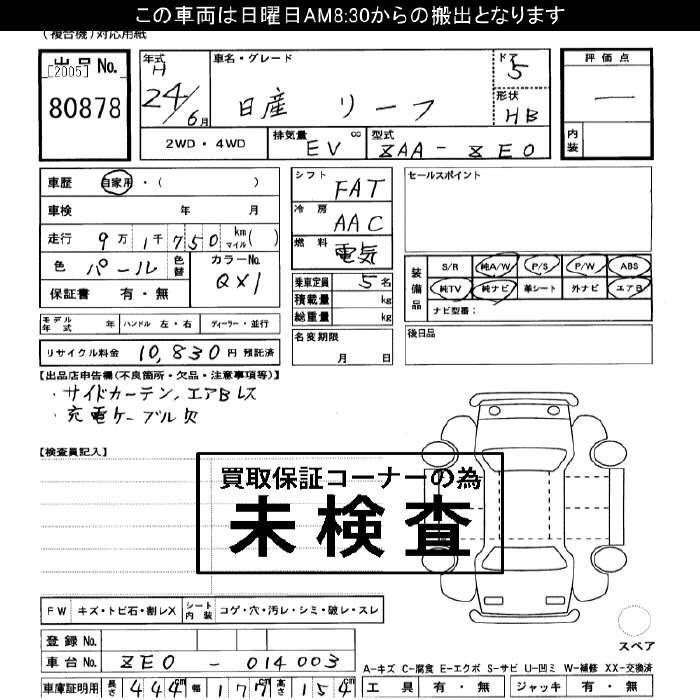 この車両は日曜日AM8:30からの搬出となります
(複合機)対応用紙
出品No.
[2005]
80878
年式 H 24/6月
車名・グレード
日産 リーフ
ドア 5
形状 HB
評価点
—
内装
2WD・4WD
排気量 EV cc
型式 ZAA-ZE0
車歴 自家用・( )
車検 年 月
走行 9万1千750 km マイル( )
色 パール 色替 カラーNo. QX1
保証書 有・無
シフト FAT
冷房 AAC
燃料 電気
乗車定員 5名
積載量 kg
総重量 kg
セールスポイント
装備品
S/R 純A/W P/S P/W ABS
純TV 純ナビ 革シート 外ナビ エアB
ナビ型番:
モデル年式 年 ハンドル 左・右 ディーラー・並行
名変期限 月 日
後日品
リサイクル料金 10,830円 預託済
【出品店申告欄(不良箇所・欠品・注意事項等)】
・サイドカーテン,エアBレス
・充電ケーブル欠
【検査員記入】
買取保証コーナーの為
未検査
FW キズ・トビ石・割レX シート内装 コゲ・穴・汚レ・シミ・破レ・スレ
登録No.
車台No. ZE0-014003
スペア
A-キズ C-腐食 E-エクボ S-サビ U-凹ミ W-補修 XX-交換済
車庫証明用 長さ 444cm 幅 177cm 高さ 154cm
工具 有・無 ジャッキ 有・無